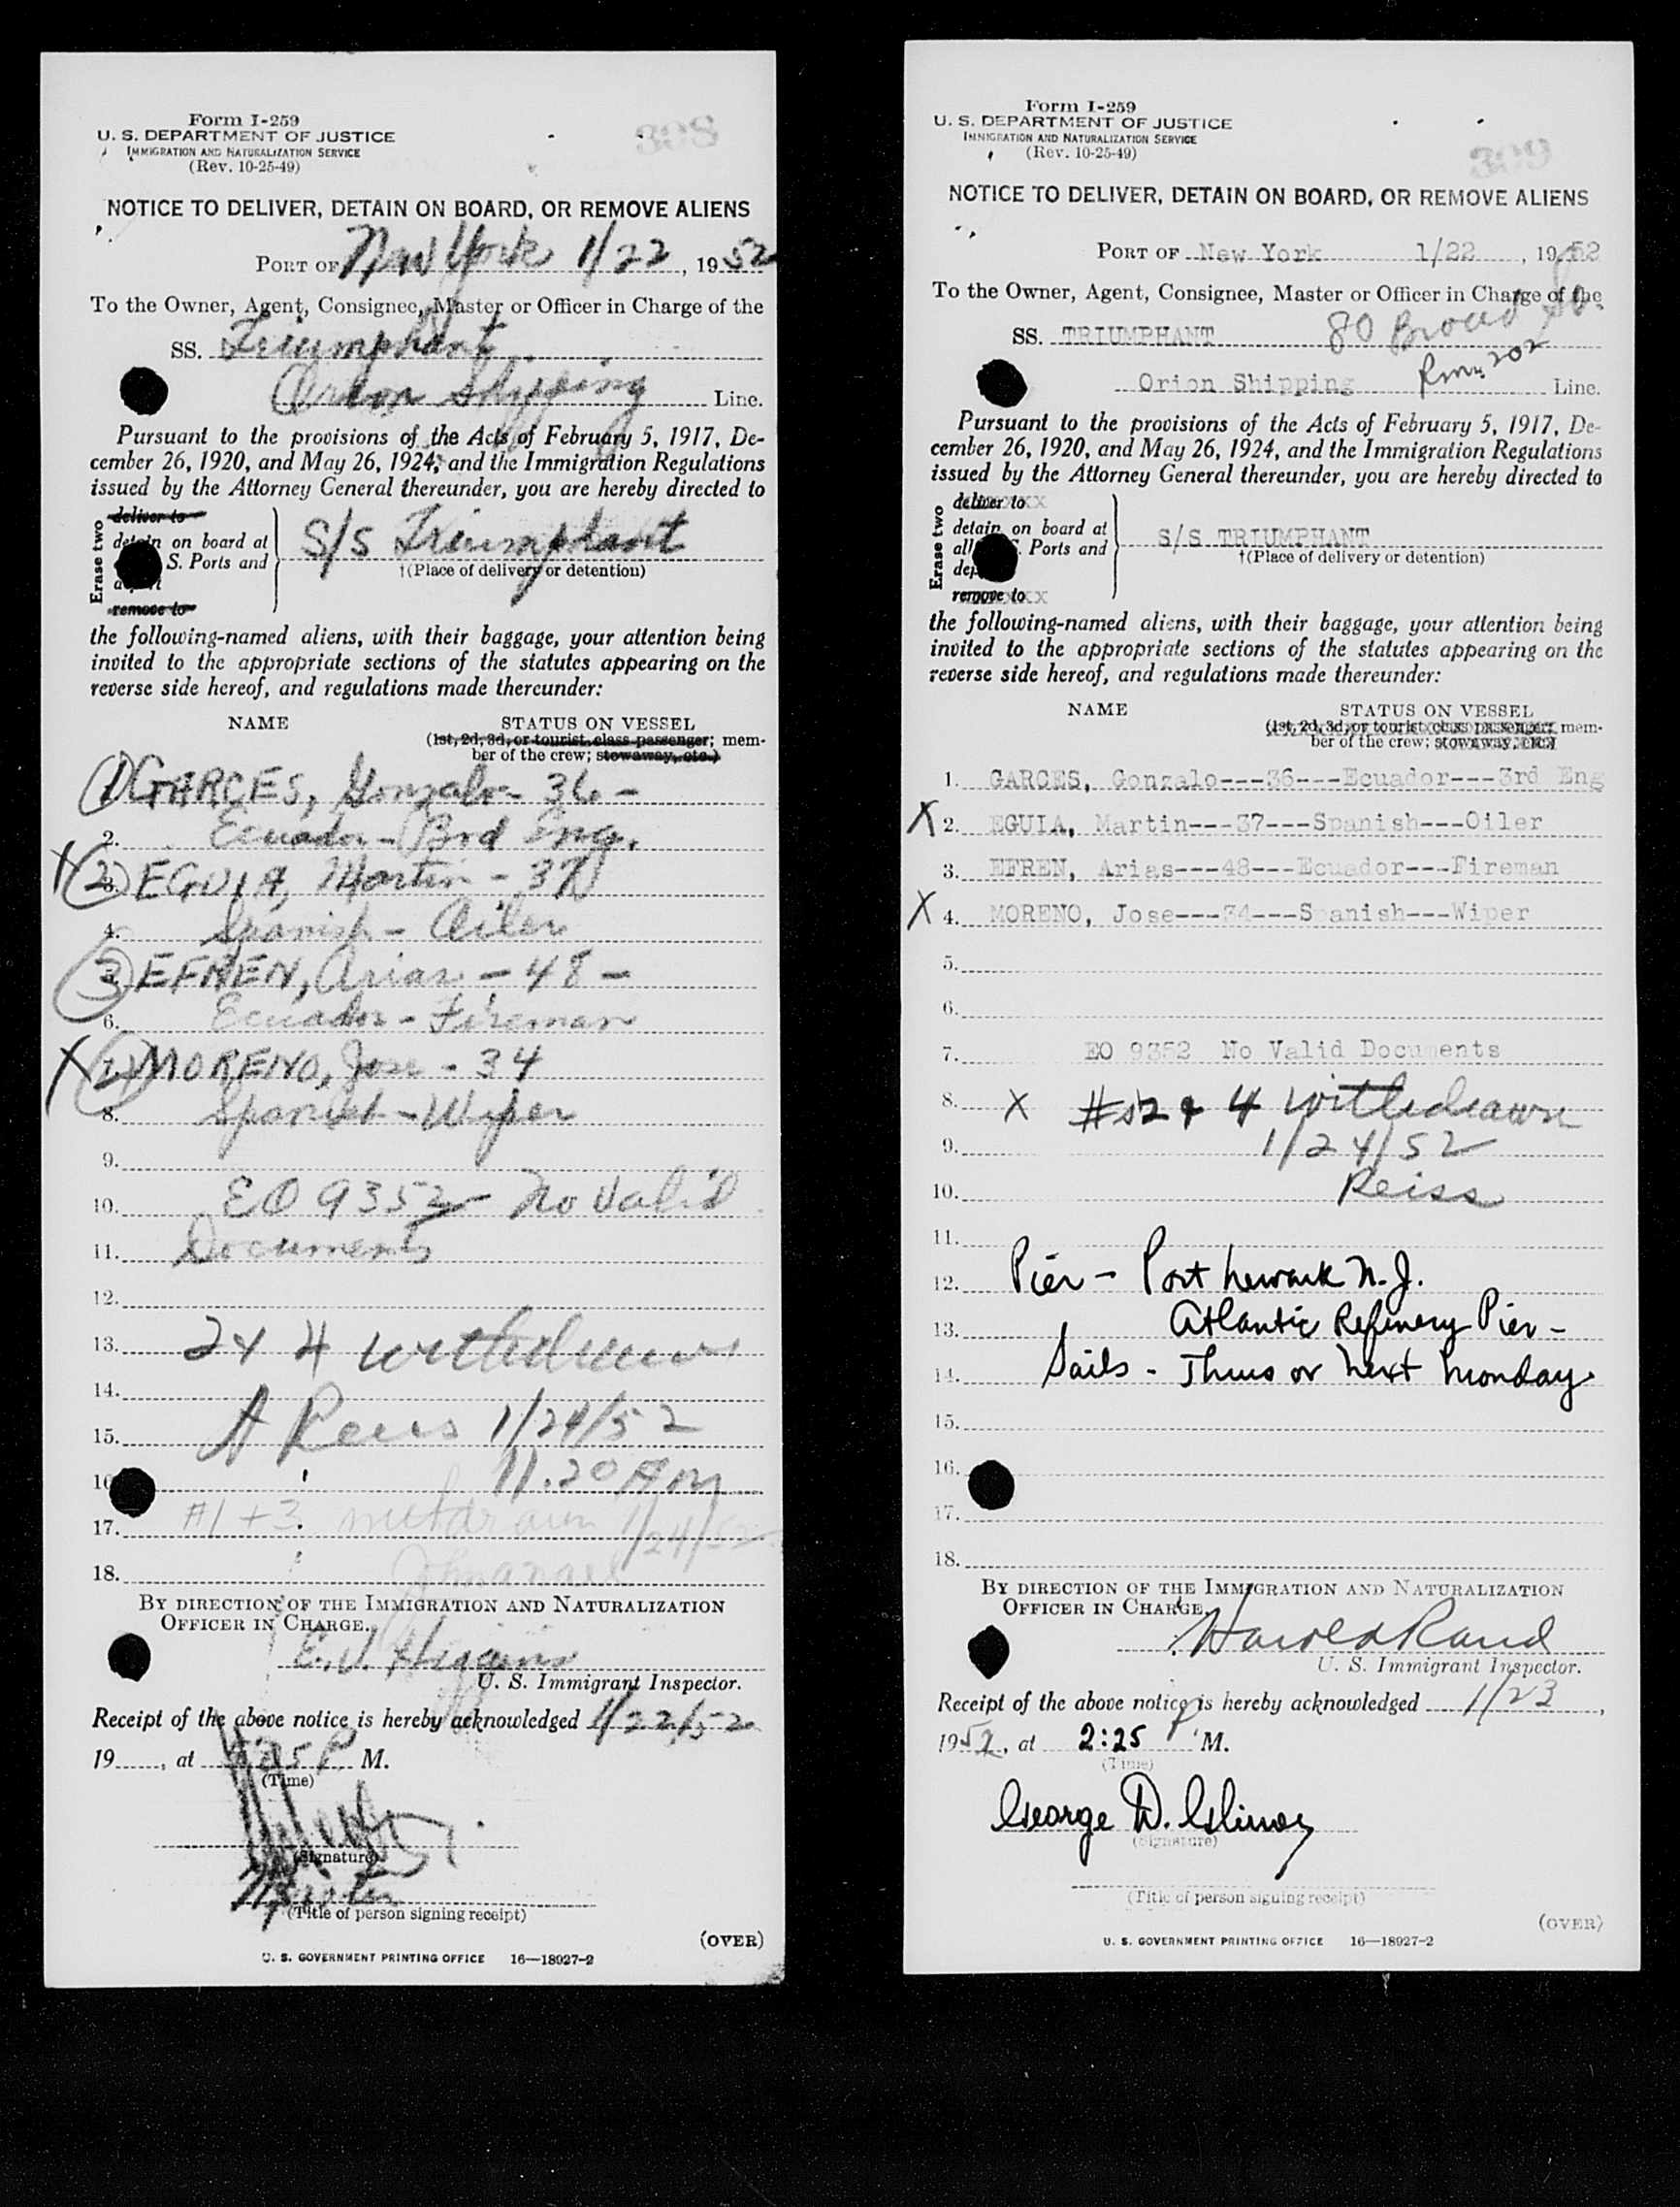 Form I-259
U. S. DEPARTMENT OF JUSTICE
IMMIGRATION AND NATURALIZATION SERVICE
(Rev. 10-25-49)
308
NOTICE TO DELIVER, DETAIN ON BOARD, OR REMOVE ALIENS
PORT OF New York 1/22, 1952
To the Owner, Agent, Consignee, Master or Officer in Charge of the
SS. Triumphant
Orion Shipping Line.
Pursuant to the provisions of the Acts of February 5, 1917, De-
cember 26, 1920, and May 26, 1924, and the Immigration Regulations
issued by the Attorney General thereunder, you are hereby directed to
Erase two
deliver to
detain on board at
S. Ports and
remove to
S/S Triumphant
†(Place of delivery or detention)
the following-named aliens, with their baggage, your attention being
invited to the appropriate sections of the statutes appearing on the
reverse side hereof, and regulations made thereunder:
NAME STATUS ON VESSEL
(1st, 2d, 3d, or tourist class passenger; mem-
ber of the crew; stowaway, etc.)
1 GARCES, Gonzalo - 36 -
2. Ecuador - 3rd Eng.
X 2 EGUIA, Martin - 37
4. Spanish - Oiler
3 EFREN, Arias - 48 -
6. Ecuador - Fireman
X 4 MORENO, Jose - 34
8. Spanish - Wiper
9.
10. EO 9352 No Valid
11. Documents
12.
13. 2 & 4 withdrawn
14.
15. A Reiss 1/24/52
16 11.20 AM
17. #1 + 3 withdrawn 1/24/52
18.
BY DIRECTION OF THE IMMIGRATION AND NATURALIZATION
OFFICER IN CHARGE.
E. J. Higgins
U. S. Immigrant Inspector.
Receipt of the above notice is hereby acknowledged 1/22/52
19......, at 25 P. M.
(Time)
(Signature)
Master
(Title of person signing receipt)
(OVER)
U. S. GOVERNMENT PRINTING OFFICE 16—18927-2
Form I-259
U. S. DEPARTMENT OF JUSTICE
IMMIGRATION AND NATURALIZATION SERVICE
(Rev. 10-25-49)
309
NOTICE TO DELIVER, DETAIN ON BOARD, OR REMOVE ALIENS
PORT OF New York 1/22, 1952
To the Owner, Agent, Consignee, Master or Officer in Charge of the
SS. TRIUMPHANT 80 Broad St.
Orion Shipping Rm. 202 Line.
Pursuant to the provisions of the Acts of February 5, 1917, De-
cember 26, 1920, and May 26, 1924, and the Immigration Regulations
issued by the Attorney General thereunder, you are hereby directed to
Erase two
deliver to
detain on board at
all S. Ports and
remove to
S/S TRIUMPHANT
†(Place of delivery or detention)
the following-named aliens, with their baggage, your attention being
invited to the appropriate sections of the statutes appearing on the
reverse side hereof, and regulations made thereunder:
NAME STATUS ON VESSEL
(1st, 2d, 3d, or tourist class passenger; mem-
ber of the crew; stowaway, etc.)
1. GARCES, Gonzalo---36---Ecuador---3rd Eng
X 2. EGUIA, Martin---37---Spanish---Oiler
3. EFREN, Arias---48---Ecuador---Fireman
X 4. MORENO, Jose---34---Spanish---Wiper
5.
6.
7. EO 9352 No Valid Documents
8. X #s 2 & 4 withdrawn
9. 1/24/52
10. Reiss
11.
12. Pier - Port Newark N.J.
13. Atlantic Refinery Pier -
14. Sails - Thurs or next Monday.
15.
16.
17.
18.
BY DIRECTION OF THE IMMIGRATION AND NATURALIZATION
OFFICER IN CHARGE.
Harold Rand
U. S. Immigrant Inspector.
Receipt of the above notice is hereby acknowledged 1/23,
1952, at 2:25 P M.
(Time)
George D.
(Signature)
(Title of person signing receipt)
(OVER)
U. S. GOVERNMENT PRINTING OFFICE 16—18927-2